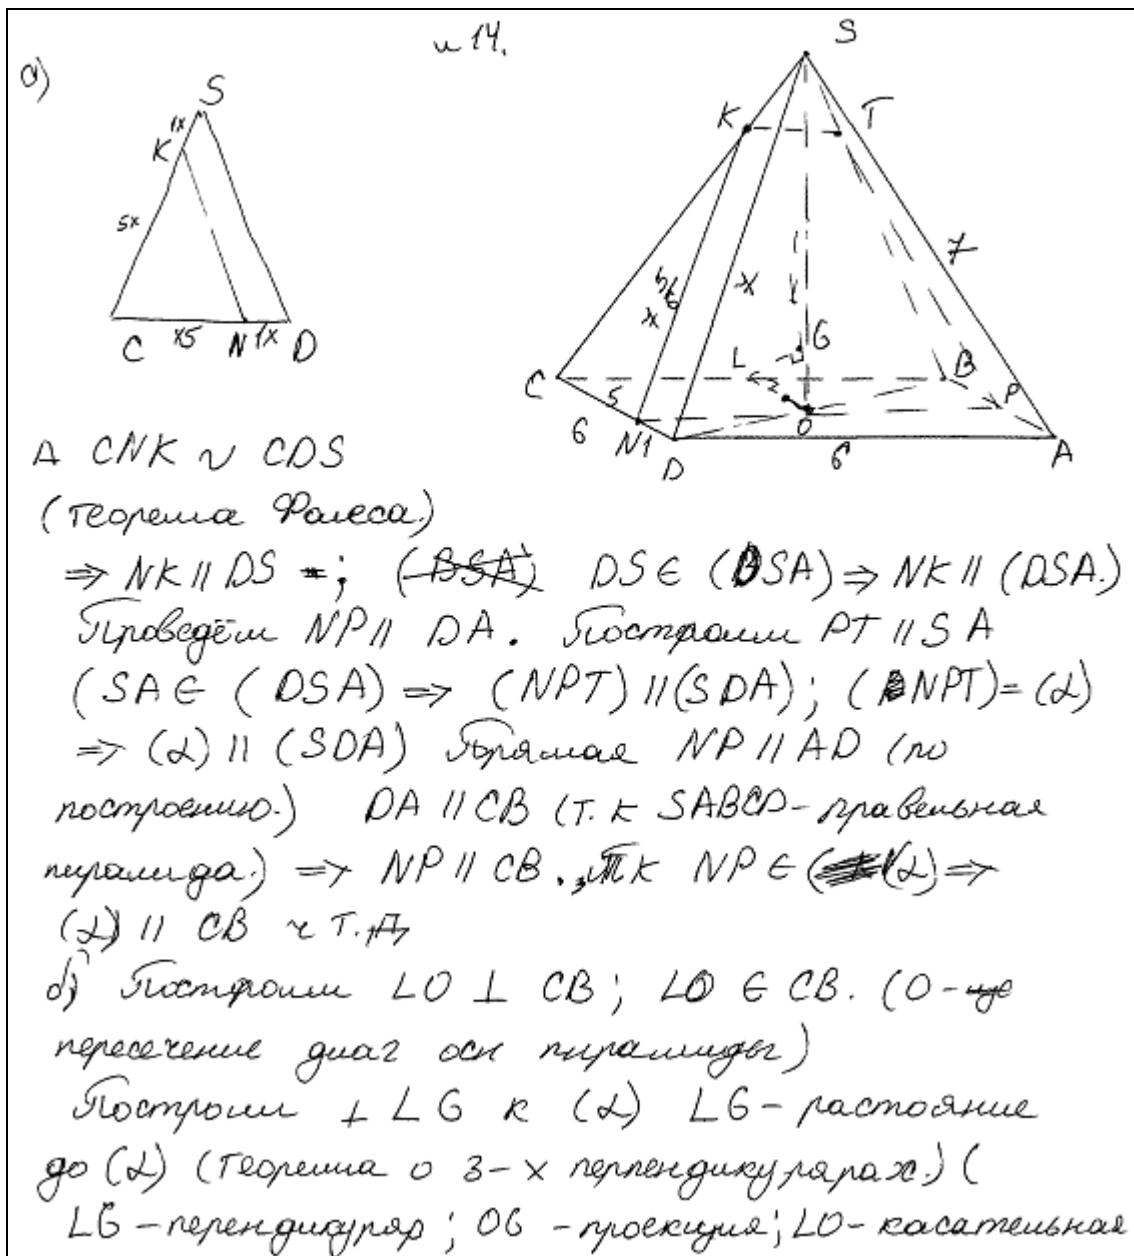 а)
и 14.
S
K
1x
5x
C
x5
N
1x
D
S
K
T
7
5/6
x
x
L
G
B
P
C
5
6
N
1
D
O
6
A
Δ CNK ∾ CDS
(теорема Фалеса)
⇒ NK || DS ; (BSA) DS ∈ (DSA) ⇒ NK || (DSA.)
Проведём NP || DA. Построим PT || SA
(SA ∈ (DSA) ⇒ (NPT) || (SDA); (NPT) = (α)
⇒ (α) || (SDA) Прямая NP || AD (по
построению.) DA || CB (т. к SABCD - правельная
пирамида.) ⇒ NP || CB., Тк NP ∈ (α) ⇒
(α) || CB ч т.,д,
б) Построим LO ⊥ CB; LO ∈ CB. (O -
пересечение диаг осн пирамиды)
Построим ⊥ LG к (α) LG - растояние
до (α) (теорема о 3-х перпендикулярах.) (
LG - перендикуляр; OG - проекция; LO - касательная